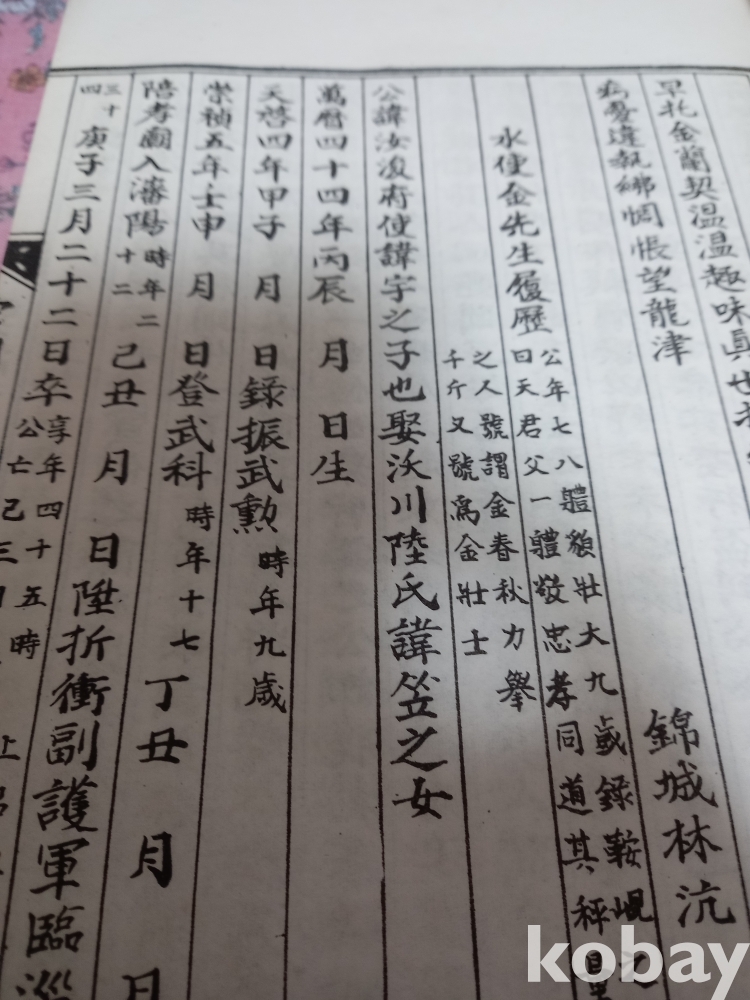 早托金蘭契溫溫趣味真也
病憂違執紼惆悵望龍津
錦城林沆
水使金先生履歷
公年七八體貌壯大九歲錄鞍峴之
曰天君父一體敬忠孝同道其秤量
之人號謂金春秋力舉
千斤又號爲金壯士
公諱汝浚府使諱宇之子也娶沃川陸氏諱笠之女
萬曆四十四年丙辰 月 日生
天啓四年甲子 月 日錄振武勳 時年九歲
崇禎五年壬申 月 日登武科 時年十七 丁丑 月 日
陪孝廟入瀋陽 時年二十二 己丑 月 日陞折衝副護軍臨
三十四 庚子三月二十二日卒 享年四十五時
公亡己三
kobay